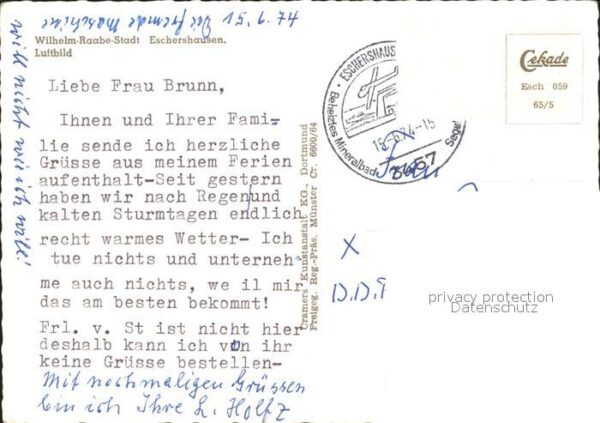 15.6.74
Die fremde Maschine
will nicht wie ich will!
Wilhelm-Raabe-Stadt Eschershausen.
Luftbild
Liebe Frau Brunn,
Ihnen und Ihrer Fami-
lie sende ich herzliche
Grüsse aus meinem Ferien
aufenthalt-Seit gestern
haben wir nach Regen/und
kalten Sturmtagen endlich
recht warmes Wetter- Ich
tue nichts und unterneh=
me auch nichts, we il mir
das am besten bekommt!
Frl. v. St ist nicht hier
deshalb kann ich von ihr
keine Grüsse bestellen-
Mit nochmaligen Grüssen
bin ich Ihre L. Holtz
Cramers Kunstanstalt KG., Dortmund
Freigeg. Reg.-Präs. Münster Cr. 6600/64
ESCHERSHAUS
Beheiztes Mineralbad
3457
Cekade
Esch 059
65/5
Frau
X
D.D.R
privacy protection
Datenschutz